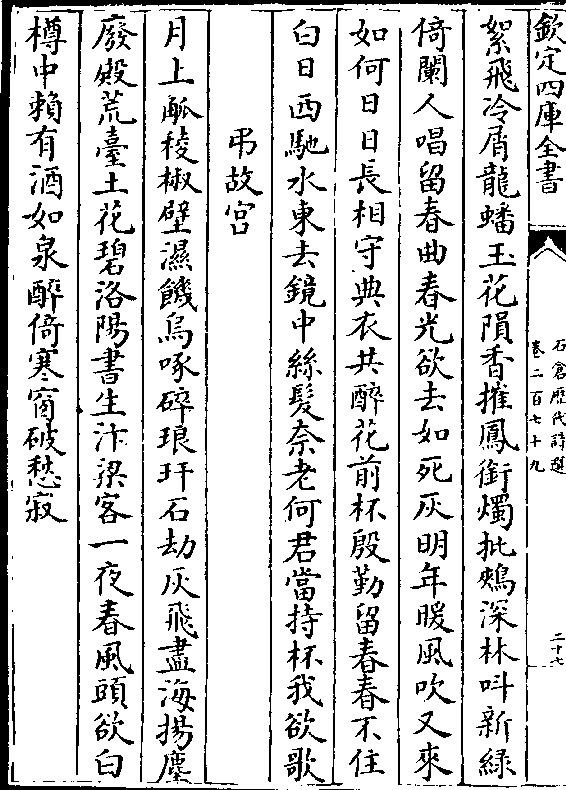 欽定四庫全書
石倉歷代詩選
卷二百七十九
二十七
絮飛冷屑龍蟠玉花隕香摧鳳銜燭批鵊深林叫新緑
倚闌人唱留春曲春光欲去如死灰明年暖風吹又來
如何日日長相守典衣共醉花前杯殷勤留春春不住
白日西馳水東去鏡中絲髮奈老何君當持杯我欲歌
弔故宫
月上觚稜椒壁濕饑烏啄碎琅玕石劫灰飛盡海揚塵
廢殿荒臺土花碧洛陽書生汴梁客一夜春風頭欲白
樽中賴有酒如泉醉倚寒窗破愁寂